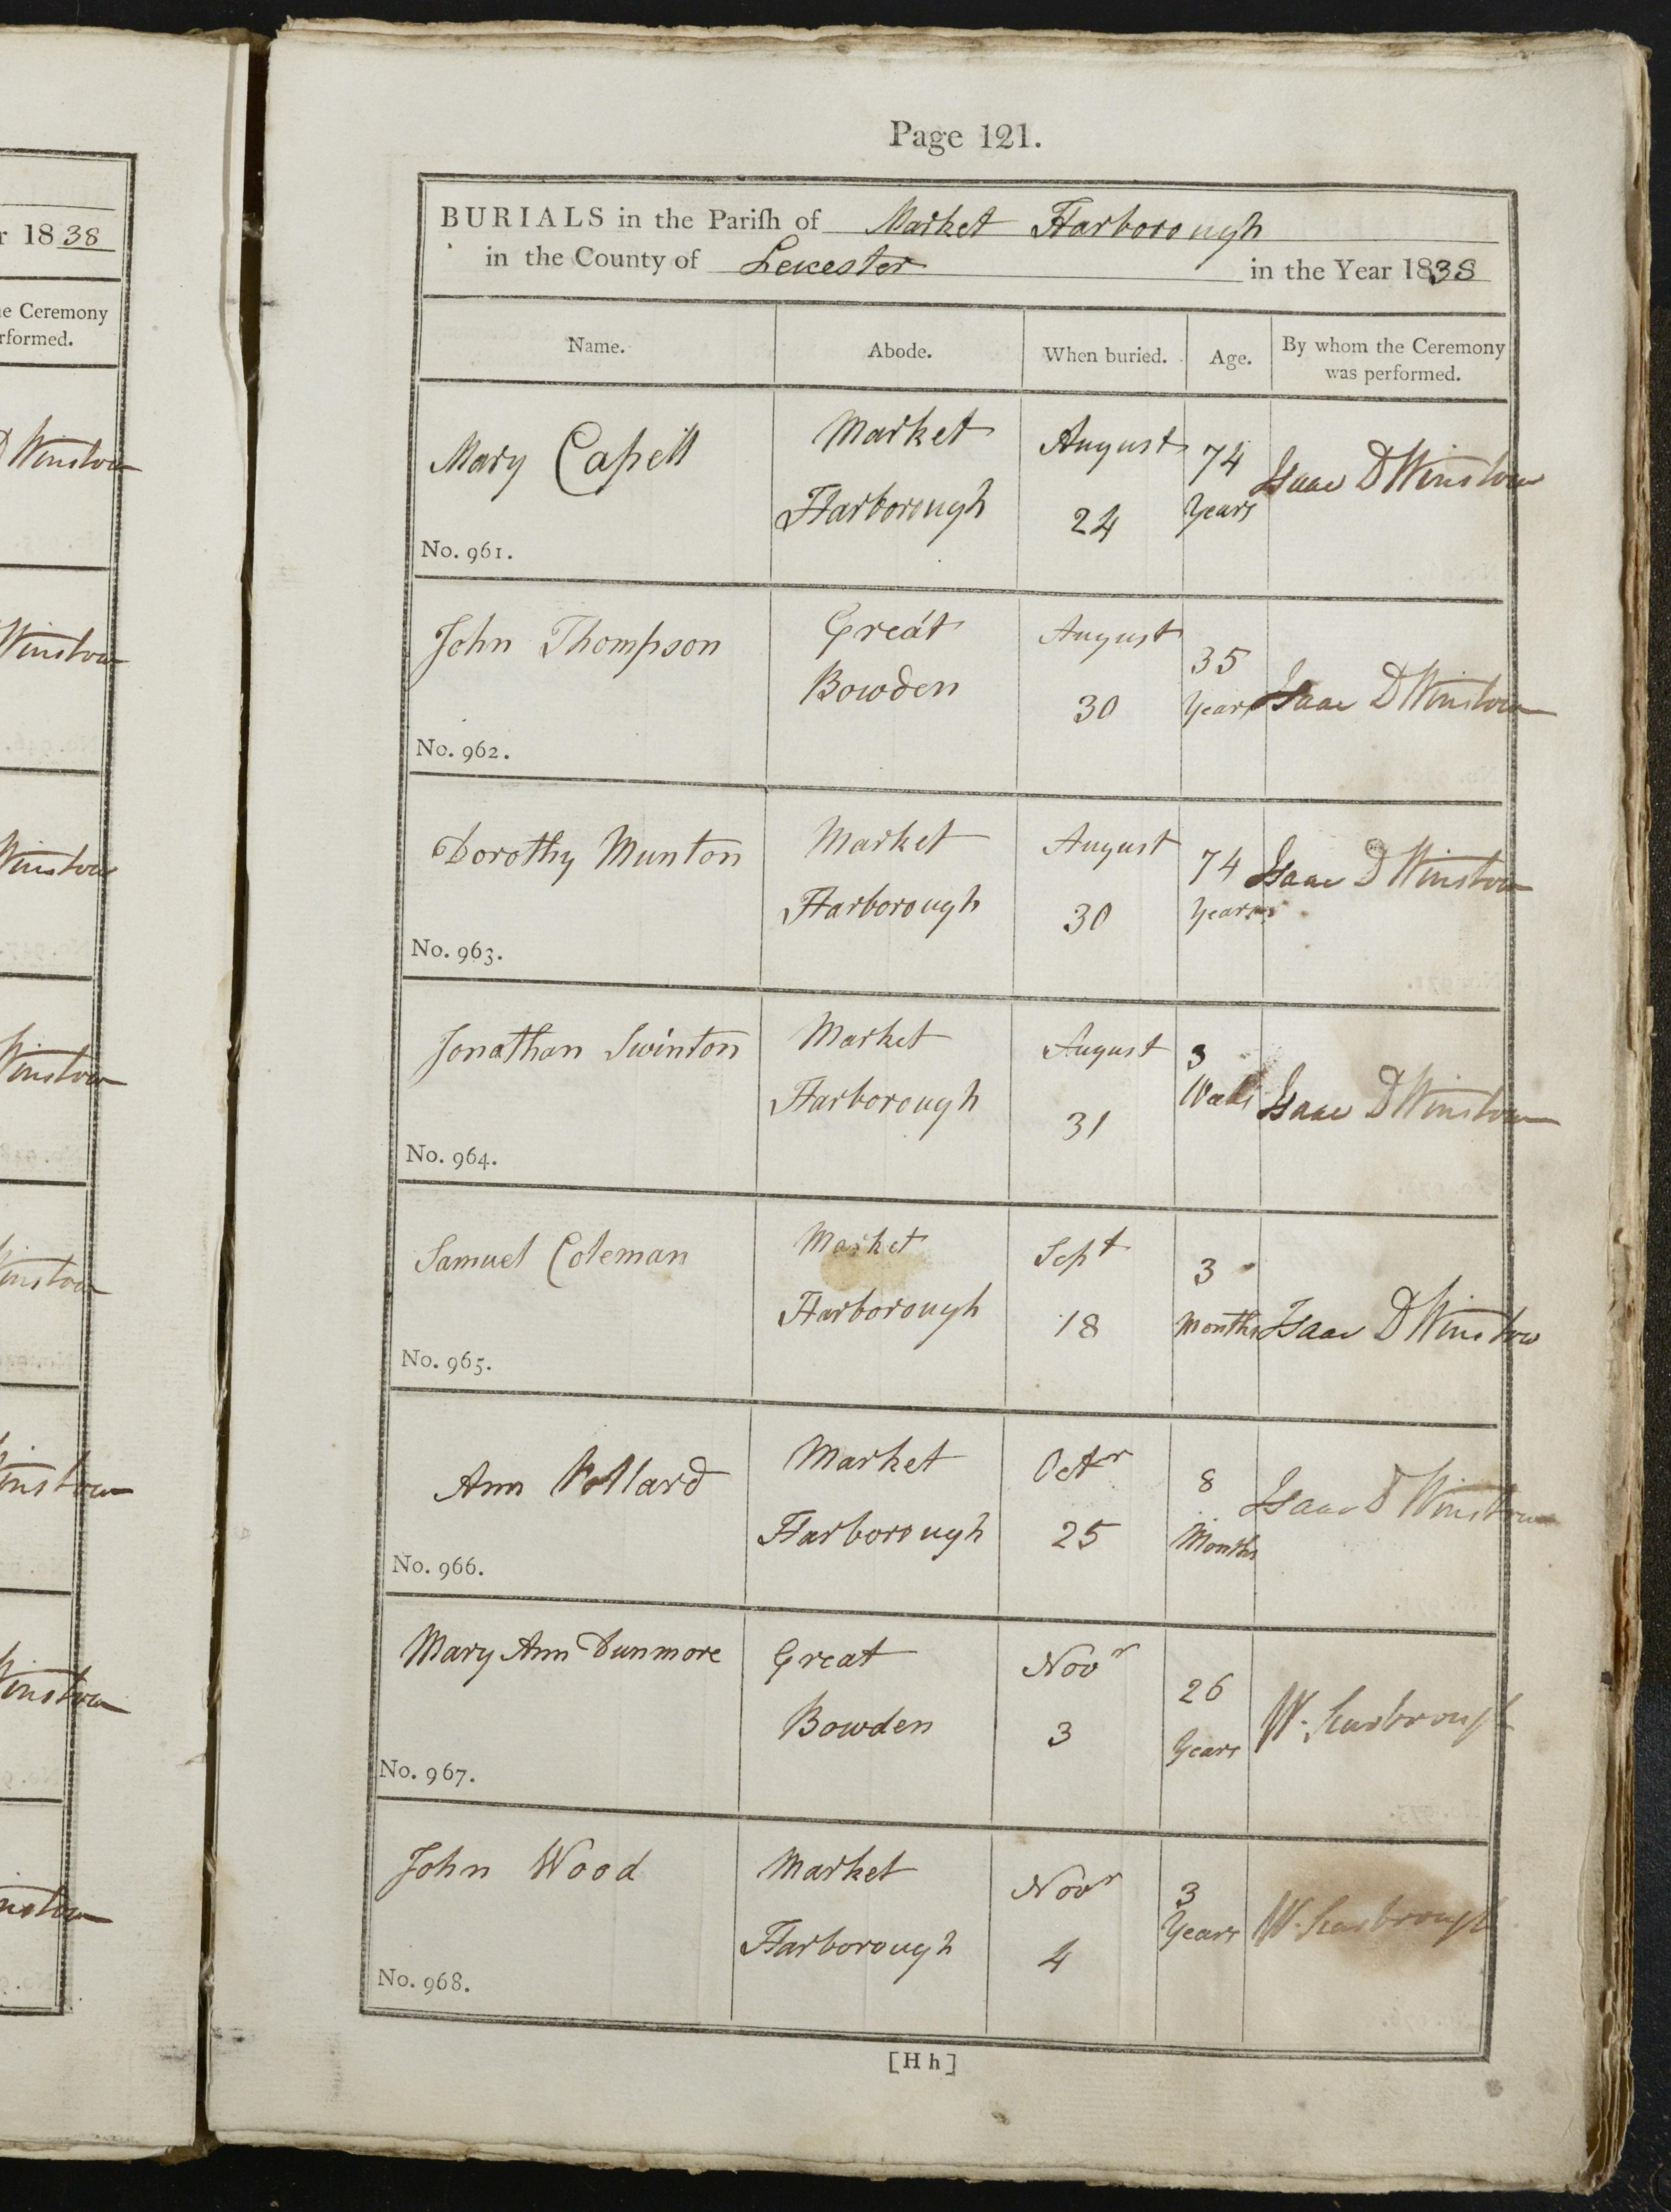 r 1838
e Ceremony
rformed.
D Winstow
Winstow
Winstow
Winstow
Winstow
Winstow
Winstow
Page 121.
BURIALS in the Pariſh of Market Harborough
in the County of Leicester in the Year 1838
Name. Abode. When buried. Age. By whom the Ceremony
was performed.
Mary Capell Market August 74 Isaac D Winstow
Harborough 24 Years
No. 961.
John Thompson Great August 35
Bowden 30 Years Isaac D Winstow
No. 962.
Dorothy Munton Market August 74 Isaac D Winstow
Harborough 30 Years
No. 963.
Jonathan Swinton Market August 3
Harborough 31 Weeks Isaac D Winstow
No. 964.
Samuel Coleman Market Sept 3
Harborough 18 Months Isaac D Winstow
No. 965.
Ann Pollard Market Octr 8 Isaac D Winstow
Harborough 25 Months
No. 966.
Mary Ann Dunmore Great Novr 26
Bowden 3 Years W. Scarbrough
No. 967.
John Wood Market Novr 3
Harborough 4 Years W. Scarbrough
No. 968.
[H h]